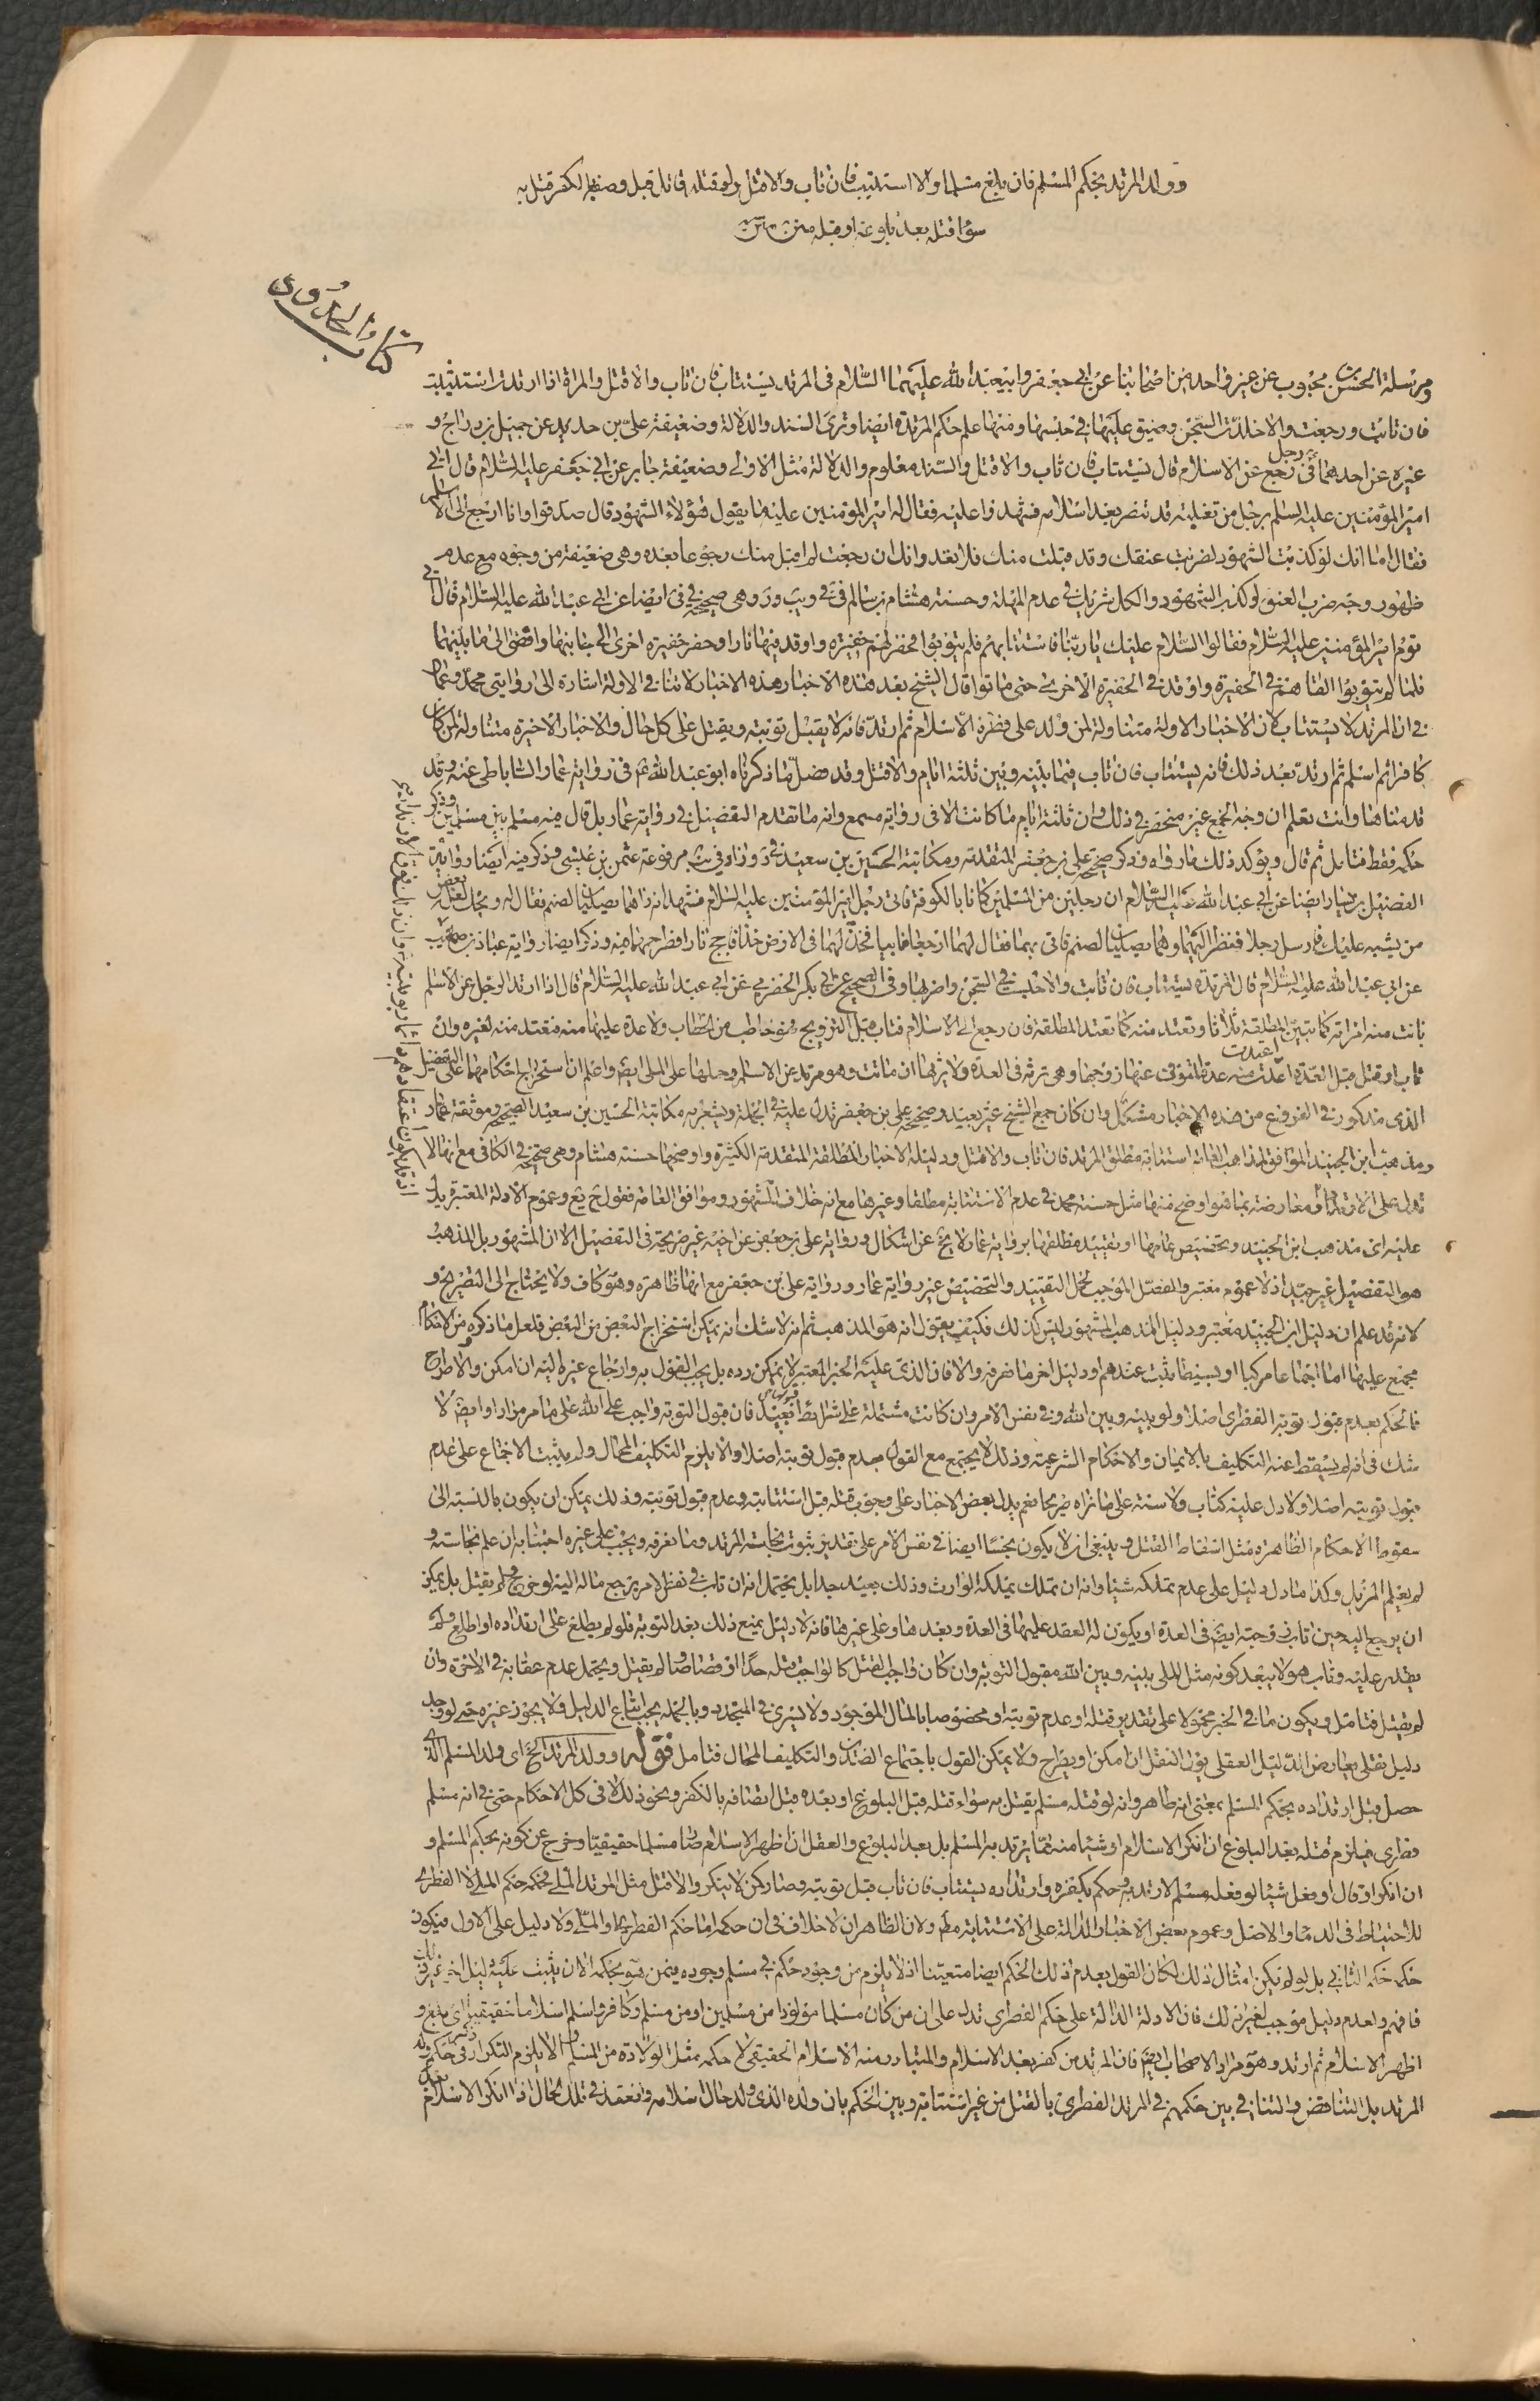 وولد المرتد بحكم المسلم فان بلغ مسلما والا استتيب فان تاب والا قتل ولو قتله قاتل قبل وصفه الكفر قتل به
سواء قتله بعد بلوغه او قبله متن
كتاب الحدود
ومرسلة الحسن بن محبوب عن غير واحد من اصحابنا عن ابي جعفر وابيعبد الله عليهما السلام في المرتد يستتاب فان تاب والا قتل والمراة اذا ارتدت استتيبت
فان تابت ورجعت والا خلدت السجن وضيق عليها في حبسها ومنها علم حكم المرتدة ايضا وترى السند والدلالة وضعيفة علي بن حديد عن جميل بن دراج و
غيره عن احدهما في رجل رجع عن الاسلام قال يستتاب فان تاب والا قتل والسند معلوم والدلالة مثل الاولى وضعيفة جابر عن ابي جعفر عليه السلام قال اتي
امير المؤمنين عليه السلم برجل من تغلبة قد تنصر بعد اسلامه فشهدوا عليه فقال له امير المؤمنين عليه ما يقول هؤلاء الشهود قال صدقوا وانا ارجع الى الاسلم
فقال اما انك لو كذبت الشهود لضربت عنقك وقد قبلت منك فلا تعد وانك ان رجعت لم اقبل منك رجوعا بعده وهي ضعيفة من وجوه مع عدم
ظهور وجه ضرب العنق لو كذب الشهود والكل شريك في عدم المهلة وحسنة هشام بن سالم في وهي صحيحة في ايضا عن ابي عبد الله عليه السلام قال اتى
قوم امير المؤمنين عليه السلام فقالوا السلام عليك يا ربنا فاستتابهم فلم يتوبوا فحفر لهم حفيرة واوقد فيها نارا وحفر حفيرة اخرى الى جانبها وافضى الى ما بينهما
فلما لم يتوبوا القاهم في الحفيرة واوقد في الحفيرة الاخرى حتى ماتوا قال الشيخ بعد هذه الاخبار هذه الاخبار لا تنافي الاولة اشارة الى روايتى محمد وعمار
في ان المرتد لا يستتاب لان الاخبار الاولة متناولة لمن ولد على فطرة الاسلام ثم ارتد فانه لا يقبل توبته ويقتل على كل حال والاخبار الاخيرة متناولة لمن كان
كافرا ثم اسلم ثم ارتد بعد ذلك فانه يستتاب فان تاب فيما بينه وبين ثلثة ايام والا قتل وقد فصل ما ذكرناه ابو عبد الله ع في رواية عمار الساباطي عنه وقد
قدمناها وانت تعلم ان وجه الجمع غير منحصر في ذلك وان ثلثة ايام ما كانت الا في رواية مسمع وانه ما تقدم التفصيل في رواية عمار بل قال فيه مسلم بين مسلمين وذكر
حكمه فقط فتامل ثم قال ويؤكد ذلك ما رواه وذكر صحيحة علي بن جعفر المتقدمة ومكاتبة الحسين بن سعيد وزاد في مرفوعة عثمن بن عيسى وذكر فيه ايضا رواية
الفضيل بن يسار ايضا عن ابي عبد الله عليه السلام ان رجلين من المسلمين كانا بالكوفة فاتى رجل امير المؤمنين عليه السلام فشهد انه راهما يصليان لصنم فقال له ويحك لعله بعض
من يشبه عليك فارسل رجلا فنظر اليهما وهما يصليان لصنم فاتي بهما فقال لهما ارجعا فابيا فخد لهما في الارض خدا فاجج نارا فطرحهما فيه وذكر ايضا رواية عباد بن صهيب
عن ابي عبد الله عليه السلام قال المرتد يستتاب فان تابت والا حبست في السجن واضر بها وفي الصحيح عن ابي بكر الحضرمي عن ابي عبد الله عليه السلام قال اذا ارتد الرجل عن الاسلم
بانت منه امراته كما تبين المطلقة ثلاثا وتعتد منه كما تعتد المطلقة فان رجع الى الاسلام فتاب قبل التزويج فهو خاطب من الخطاب ولا عدة عليها منه فتعتد منه لغيره وان
تاب او قتل قبل العدة اعتدت منه عدة المتوفى عنها زوجها وهي ترثه في العدة ولا يرثها ان ماتت وهو مرتد عن الاسلم وحملها على الملي ايضا واعلم ان استخراج احكامهما على التفصيل
الذي مذكور في الفروع من هذه الاخبار مشكل وان كان جمع الشيخ غير بعيد وصحيحة علي بن جعفر تدل عليه في الجملة ويشعر به مكاتبة الحسين بن سعيد الصحيحة وموثقة عمار
ومذهب ابن الجنيد الموافق لمذاهب العامة استتابة مطلق المرتد فان تاب والا قتل ودليله الاخبار المطلقة المتقدمة الكثيرة واوضحها حسنة هشام وهي صحيحة في الكافي مع انها لا
تدل على الارتداد ومعارضة بما هو اوضح منها مثل حسنة محمد في عدم الاستتابة مطلقا وغيرها مع انه خلاف المشهور وموافق العامة فقول وعموم الادلة المعتبرة يدل
عليه اي مذهب ابن الجنيد وتخصيص عامها او تقييد مطلقها برواية عمار لا يخ عن اشكال ورواية علي بن جعفر عن اخيه غير صريحة في التفصيل الا ان المشهور بل المذهب
هو التفصيل غير جيد اذ لا عموم معتبر والمفصل الموجب لحمل التقييد والتخصيص غير رواية عمار ورواية علي بن جعفر مع انها ظاهرة وهو كاف ولا يحتاج الى التصريح و
لانه قد علم ان دليل ابن الجنيد معتبر ودليل المذهب المشهور ليس كذلك فكيف يقول انه هو المذهب ثم انه لا شك انه يمكن استخراج البعض من البعض فلعل ما ذكروه من الاحكام
مجمع عليها اما اجماعا مركبا او بسيطا يثبت عندهم او دليل اخر ما ضرفه والا فان الذي عليه الخبر المعتبر لا يمكن رده بل يجب القول به وارجاع غيره اليه ان امكن والا طرح
فالحكم بعدم قبول توبة الفطري اصلا ولو بينه وبين الله وفي نفس الامر وان كانت مشتملة على شرائط بعيد فان قبول التوبة واجب على الله على ما مر مرارا وايضا لا
شك في انه لم يسقط عنه التكليف بالايمان والاحكام الشرعية وذلك لا يجتمع مع القول بعدم قبول توبته اصلا والا يلزم التكليف المحال ولم يثبت الاجماع على عدم
قبول توبته اصلا ولا دل عليه كتاب ولا سنة على ما نراه صريحا نعم يدل بعض الاخبار على وجوب قتله قبل استتابته وعدم قبول توبته وذلك يمكن ان يكون بالنسبة الى
سقوط الاحكام الظاهرة مثل اسقاط القتل وينبغي ان لا يكون نجسا ايضا في نفس الامر على تقدير ثبوت نجاسة المرتد وما نعرفه ويجب على غيره اجتنابه ان علم نجاسته و
لم يعلم المزيل وكذا ما دل دليل على عدم تملكه شيئا وانه ان تملك يملكه الوارث وذلك بعيد جدا بل يحتمل انه ان تاب في نفس الامر يرجع ماله اليه لو خرج حيا لم يقتل بل يمكن
ان يرجع اليه حين تاب زوجته ايضا في العدة او يكون له العقد عليها في العدة وبعدها وعلى غيرها فانه لا دليل يمنع ذلك بعد التوبة فلو لم يطلع على ارتداده او اطلع ولم
يقدر عليه وتاب هو لا يبعد كونه مثل الملي بينه وبين الله مقبول التوبة وان كان واجب القتل كالواجب قتله حدا او قصاصا ولم يقتل ويحتمل عدم عقابه في الاخرة وان
لم يقتل فتامل ويكون ما في الخبر محمولا على تقدير قتله او عدم توبته او مخصوصا بالمال الموجود ولا يسري في المتجدد وبالجملة يجب اتباع الدليل ولا يجوز غيره حتى لو وجد
دليل نقلي يعارض الدليل العقلي يؤل النقل ان امكن او يطرح ولا يمكن القول باجتماع الضدين والتكليف المحال فتامل قوله وولد المرتد الخ اي ولد المسلم الذي
حصل قبل ارتداده بحكم المسلم بمعنى انه طاهر وانه لو قتله مسلم يقتل به سواء قتله قبل البلوغ او بعده قبل اتصافه بالكفر ونحو ذلك لا في كل الاحكام حتى في انه مسلم
فطري فيلزم قتله بعد البلوغ ان انكر الاسلام او شيئا منه مما يرتد به المسلم بل بعد البلوغ والعقل ان اظهر الاسلام صار مسلما حقيقيا وخرج عن كونه بحكم المسلم و
ان انكر او قال او فعل شيئا لو فعله مسلم لارتد به وحكم بكفره وارتداده يستتاب فان تاب قبل توبته وصار كمن لا ينكر والا قتل مثل المرتد الملي فحكمه حكم الملي لا الفطري
للاحتياط في الدماء والاصل وعموم بعض الاخبار الدالة على الاستتابة مط ولان الظاهر ان لا خلاف في ان حكمه اما حكم الفطري او الملي ولا دليل على الاول فيكون
حكمه حكم الثاني بل لو لم يكن امثال ذلك لكان القول بعدم ذلك الحكم ايضا متعينا اذ لا يلزم من وجود حكم في مسلم وجوده فيمن هو بحكمه الا ان يثبت عليه دليل
فافهم ولعدم دليل موجب لغير ذلك فان الادلة الدالة على حكم الفطري تدل على ان من كان مسلما مولودا من مسلمين او من مسلم وكافر واسلم اسلاما حقيقيا اي بلغ و
اظهر الاسلام ثم ارتد وهو مراد الاصحاب ايضا فان المرتد من كفر بعد الاسلام والمتبادر منه الاسلام الحقيقي لا حكمه بمثل الولادة من المسلم والا يلزم التكرار في حكم ولد
المرتد بل التناقض والتنافي بين حكمهم في المرتد الفطري بالقتل من غير استتابة وبين الحكم بان ولده الذي ولد حال اسلامه وانعقد في تلك الحال اذا انكر الاسلام